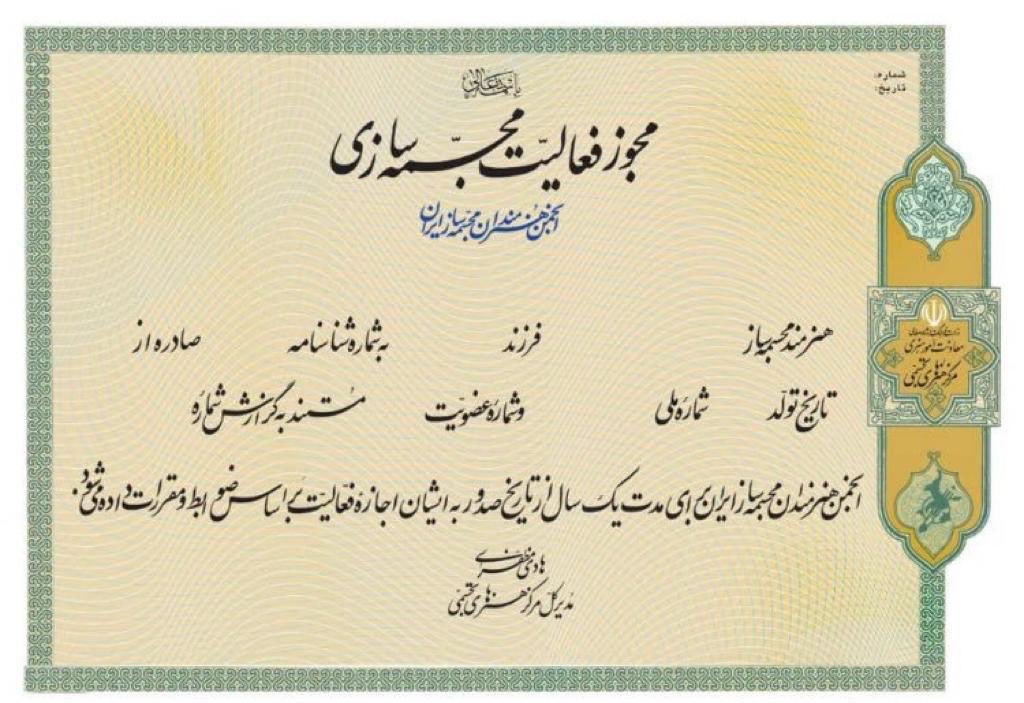 باسمه تعالی
شماره:
تاریخ:
مجوز فعالیت مجسمه سازی
انجمن هنرمندان مجسمه ساز ایران
هنرمند مجسمه ساز فرزند به شماره شناسنامه صادره از
تاریخ تولد شماره ملی و شماره عضویت مستند به گزارش شماره
انجمن هنرمندان مجسمه ساز ایران برای مدت یک سال از تاریخ صدور به ایشان اجازه فعالیت بر اساس ضوابط و مقررات داده می شود.
هادی مظفری
مدیر کل مرکز هنرهای تجسمی
وزارت فرهنگ و ارشاد اسلامی
معاونت امور هنری
مرکز هنرهای تجسمی